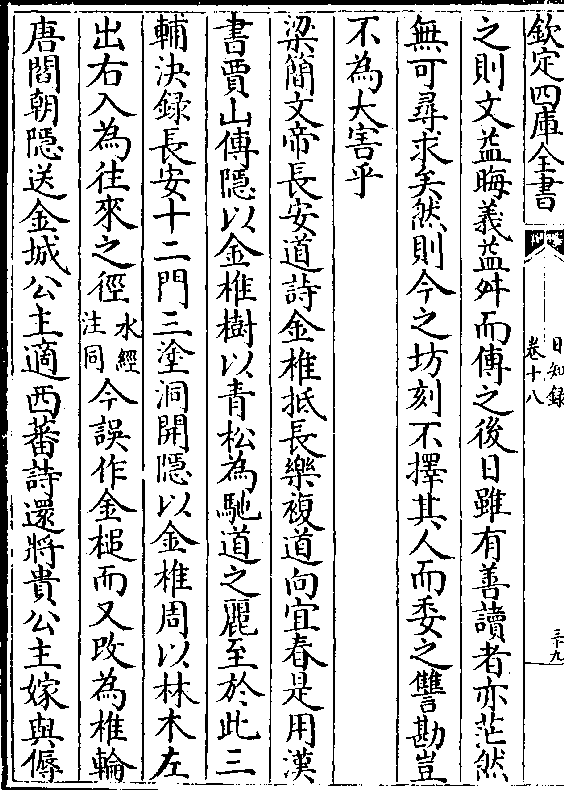 欽定四庫全書
日知録
卷十八
三十九
之則文益晦義益舛而傳之後日雖有善讀者亦茫然
無可尋求矣然則今之坊刻不擇其人而委之讐勘豈
不為大害乎
梁簡文帝長安道詩金椎抵長樂複道向宜春是用漢
書賈山傳隱以金椎樹以青松為馳道之麗至於此三
輔決録長安十二門三塗洞開隱以金椎周以林木左
出右入為往來之徑水經注同今誤作金槌而又改為椎輪
唐閻朝隱送金城公主適西蕃詩還將貴公主嫁與傉